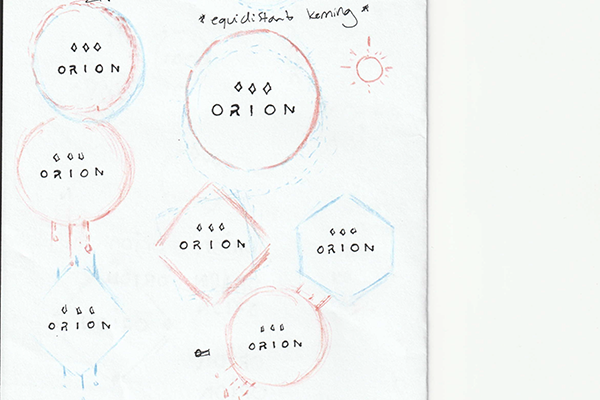 *equidistant kerning*
ORION
ORION
ORION
ORION
ORION
ORION
ORION